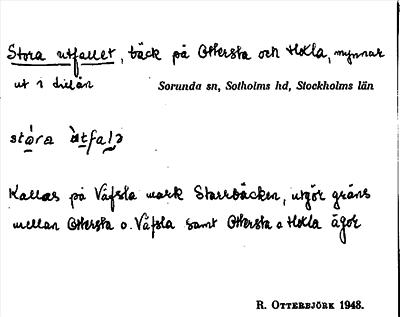 Stora utfallet, bäck på Ottersta och Hokla, mynnar
ut i
Sorunda sn, Sotholms hd, Stockholms län
stóra ùtfalə
Kallas på Våfsla mark Starrbäcken, utgör gräns
mellan Ottersta o. Våfsla samt Ottersta o Hokla ägor
R. OTTERBJÖRK 1948.